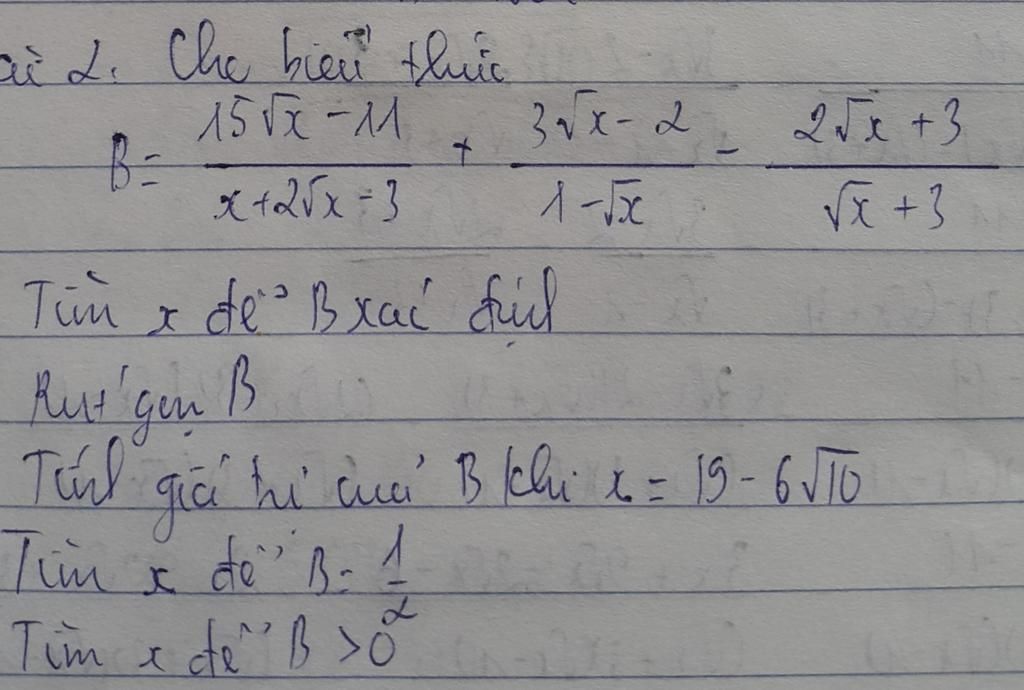 ài 2. Cho biểu thức
B = \frac{15\sqrt{x} - 11}{x + 2\sqrt{x} - 3} + \frac{3\sqrt{x} - 2}{1 - \sqrt{x}} - \frac{2\sqrt{x} + 3}{\sqrt{x} + 3}
Tìm x để B xác định
Rút gọn B
Tính giá trị của B khi x = 19 - 6\sqrt{10}
Tìm x để B = \frac{1}{2}
Tìm x để B > 0